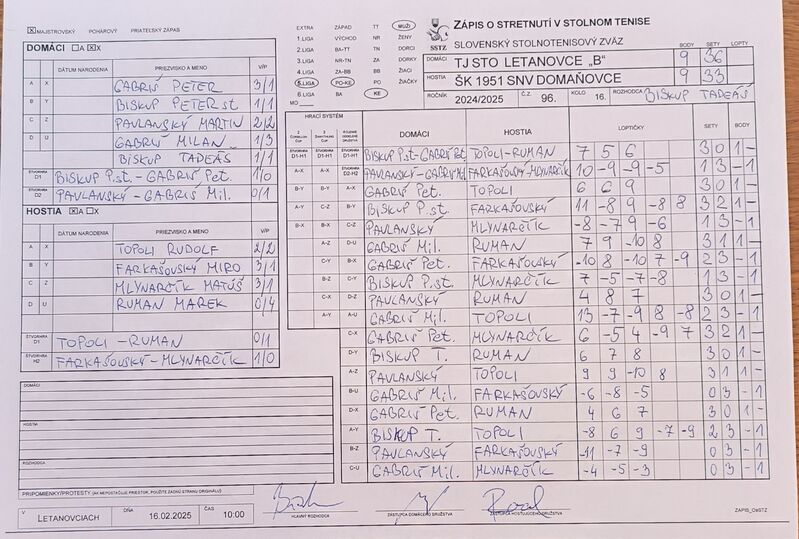 MAJSTROVSKÝ POHÁROVÝ PRIATEĽSKÝ ZÁPAS
DOMÁCI A X
DÁTUM NARODENIA PRIEZVISKO A MENO V/P
A X GABRIŠ PETER 3/1
B Y BISKUP PETER st 1/1
C Z PAVLANSKÝ MARTIN 2/2
D U GABRIŠ MILAN 1/3
BISKUP TADEÁŠ 1/1
ŠTVORHRA D1 BISKUP P.st - GABRIŠ Pet. 1/0
ŠTVORHRA D2 PAVLANSKÝ - GABRIŠ Mil. 0/1
HOSTIA A X
DÁTUM NARODENIA PRIEZVISKO A MENO V/P
A X TOPOLI RUDOLF 2/2
B Y FARKAŠOVSKÝ MIRO 3/1
C Z MLYNARČÍK MATÚŠ 3/1
D U RUMAN MAREK 0/4
ŠTVORHRA D1 TOPOLI - RUMAN 0/1
ŠTVORHRA H2 FARKAŠOVSKÝ - MLYNARČÍK 1/0
DOMÁCI
HOSTIA
ROZHODCA
PRIPOMIENKY/PROTESTY (AK NEPOSTAČUJE PRIESTOR, POUŽITE ZADNÚ STRANU ORIGINÁLU)
V LETANOVCIACH DŇA 16.02.2025 ČAS 10:00
EXTRA ZÁPAD TT MUŽI
1. LIGA VÝCHOD NR ŽENY
2. LIGA BA-TT TN DORCI
3. LIGA NR-TN ZA DORKY
4. LIGA ZA-BB BB ŽIACI
5. LIGA PO-KE PO ŽIAČKY
6. LIGA BA KE
MO
SSTZ
ZÁPIS O STRETNUTÍ V STOLNOM TENISE
SLOVENSKÝ STOLNOTENISOVÝ ZVÄZ
BODY SETY LOPTY
DOMÁCI TJ STO LETANOVCE „B" 9 36
HOSTIA ŠK 1951 SNV DOMAŇOVCE 9 33
ROČNÍK 2024/2025 Č.Z. 96. KOLO 16. ROZHODCA BISKUP TADEÁŠ
HRACÍ SYSTÉM
DOMÁCI HOSTIA LOPTIČKY SETY BODY
ŠTVORHRA D1-H1 ŠTVORHRA D1-H1 ŠTVORHRA D1-H1 BISKUP P.st - GABRIŠ Pet. TOPOLI-RUMAN 7 5 6 3 0 1 -
A-X A-X ŠTVORHRA D2-H2 PAVLANSKÝ - GABRIŠ Mil. FARKAŠOVSKÝ-MLYNARČÍK 10 -9 -9 -5 1 3 - 1
B-Y B-Y A-X GABRIŠ Pet. TOPOLI 6 6 9 3 0 1 -
A-Y C-Z B-Y BISKUP P.st. FARKAŠOVSKÝ 11 -8 9 -8 8 3 2 1 -
B-X B-X C-Z PAVLANSKÝ MLYNARČÍK -8 -7 9 -6 1 3 - 1
A-Z D-U GABRIŠ Mil. RUMAN 7 9 -10 8 3 1 1 -
C-Y B-X GABRIŠ Pet. FARKAŠOVSKÝ -10 8 -10 7 -9 2 3 - 1
B-Z C-Y BISKUP P.st MLYNARČÍK 7 -5 -7 -8 1 3 - 1
C-X D-Z PAVLANSKÝ RUMAN 4 8 7 3 0 1 -
A-Y A-U GABRIŠ Mil. TOPOLI 13 -7 -9 8 -8 2 3 - 1
C-X GABRIŠ Pet. MLYNARČÍK 6 -5 4 -9 7 3 2 1 -
D-Y BISKUP T. RUMAN 6 7 8 3 0 1 -
A-Z PAVLANSKÝ TOPOLI 9 9 -10 8 3 1 1 -
B-U GABRIŠ Mil. FARKAŠOVSKÝ -6 -8 -5 0 3 - 1
D-X GABRIŠ Pet. RUMAN 4 6 7 3 0 1 -
A-Y BISKUP T. TOPOLI -8 6 9 -7 -9 2 3 - 1
B-Z PAVLANSKÝ FARKAŠOVSKÝ -11 -7 -9 0 3 - 1
C-U GABRIŠ Mil. MLYNARČÍK -4 -5 -3 0 3 - 1
HLAVNÝ ROZHODCA ZÁSTUPCA DOMÁCEHO DRUŽSTVA ZÁSTUPCA HOSŤUJÚCEHO DRUŽSTVA
ZAPIS_OSSTZ